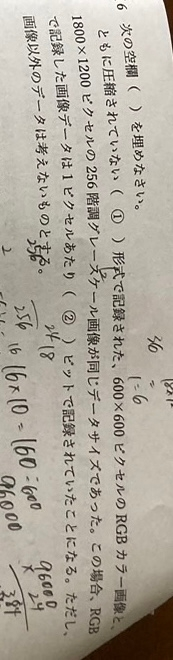 6 次の空欄（ ）を埋めなさい。
ともに圧縮されていない（ ① ）形式で記録された、600×600 ピクセルの RGB カラー画像と、
1800×1200 ピクセルの 256 階調グレースケール画像が同じデータサイズであった。この場合、RGB
で記録した画像データは 1 ピクセルあたり（ ② ）ビットで記録されていたことになる。ただし、
画像以外のデータは考えないものとする。
36
=
1=6
256
256
2
24
18
16
16×10=160
96000
96000
×24
384